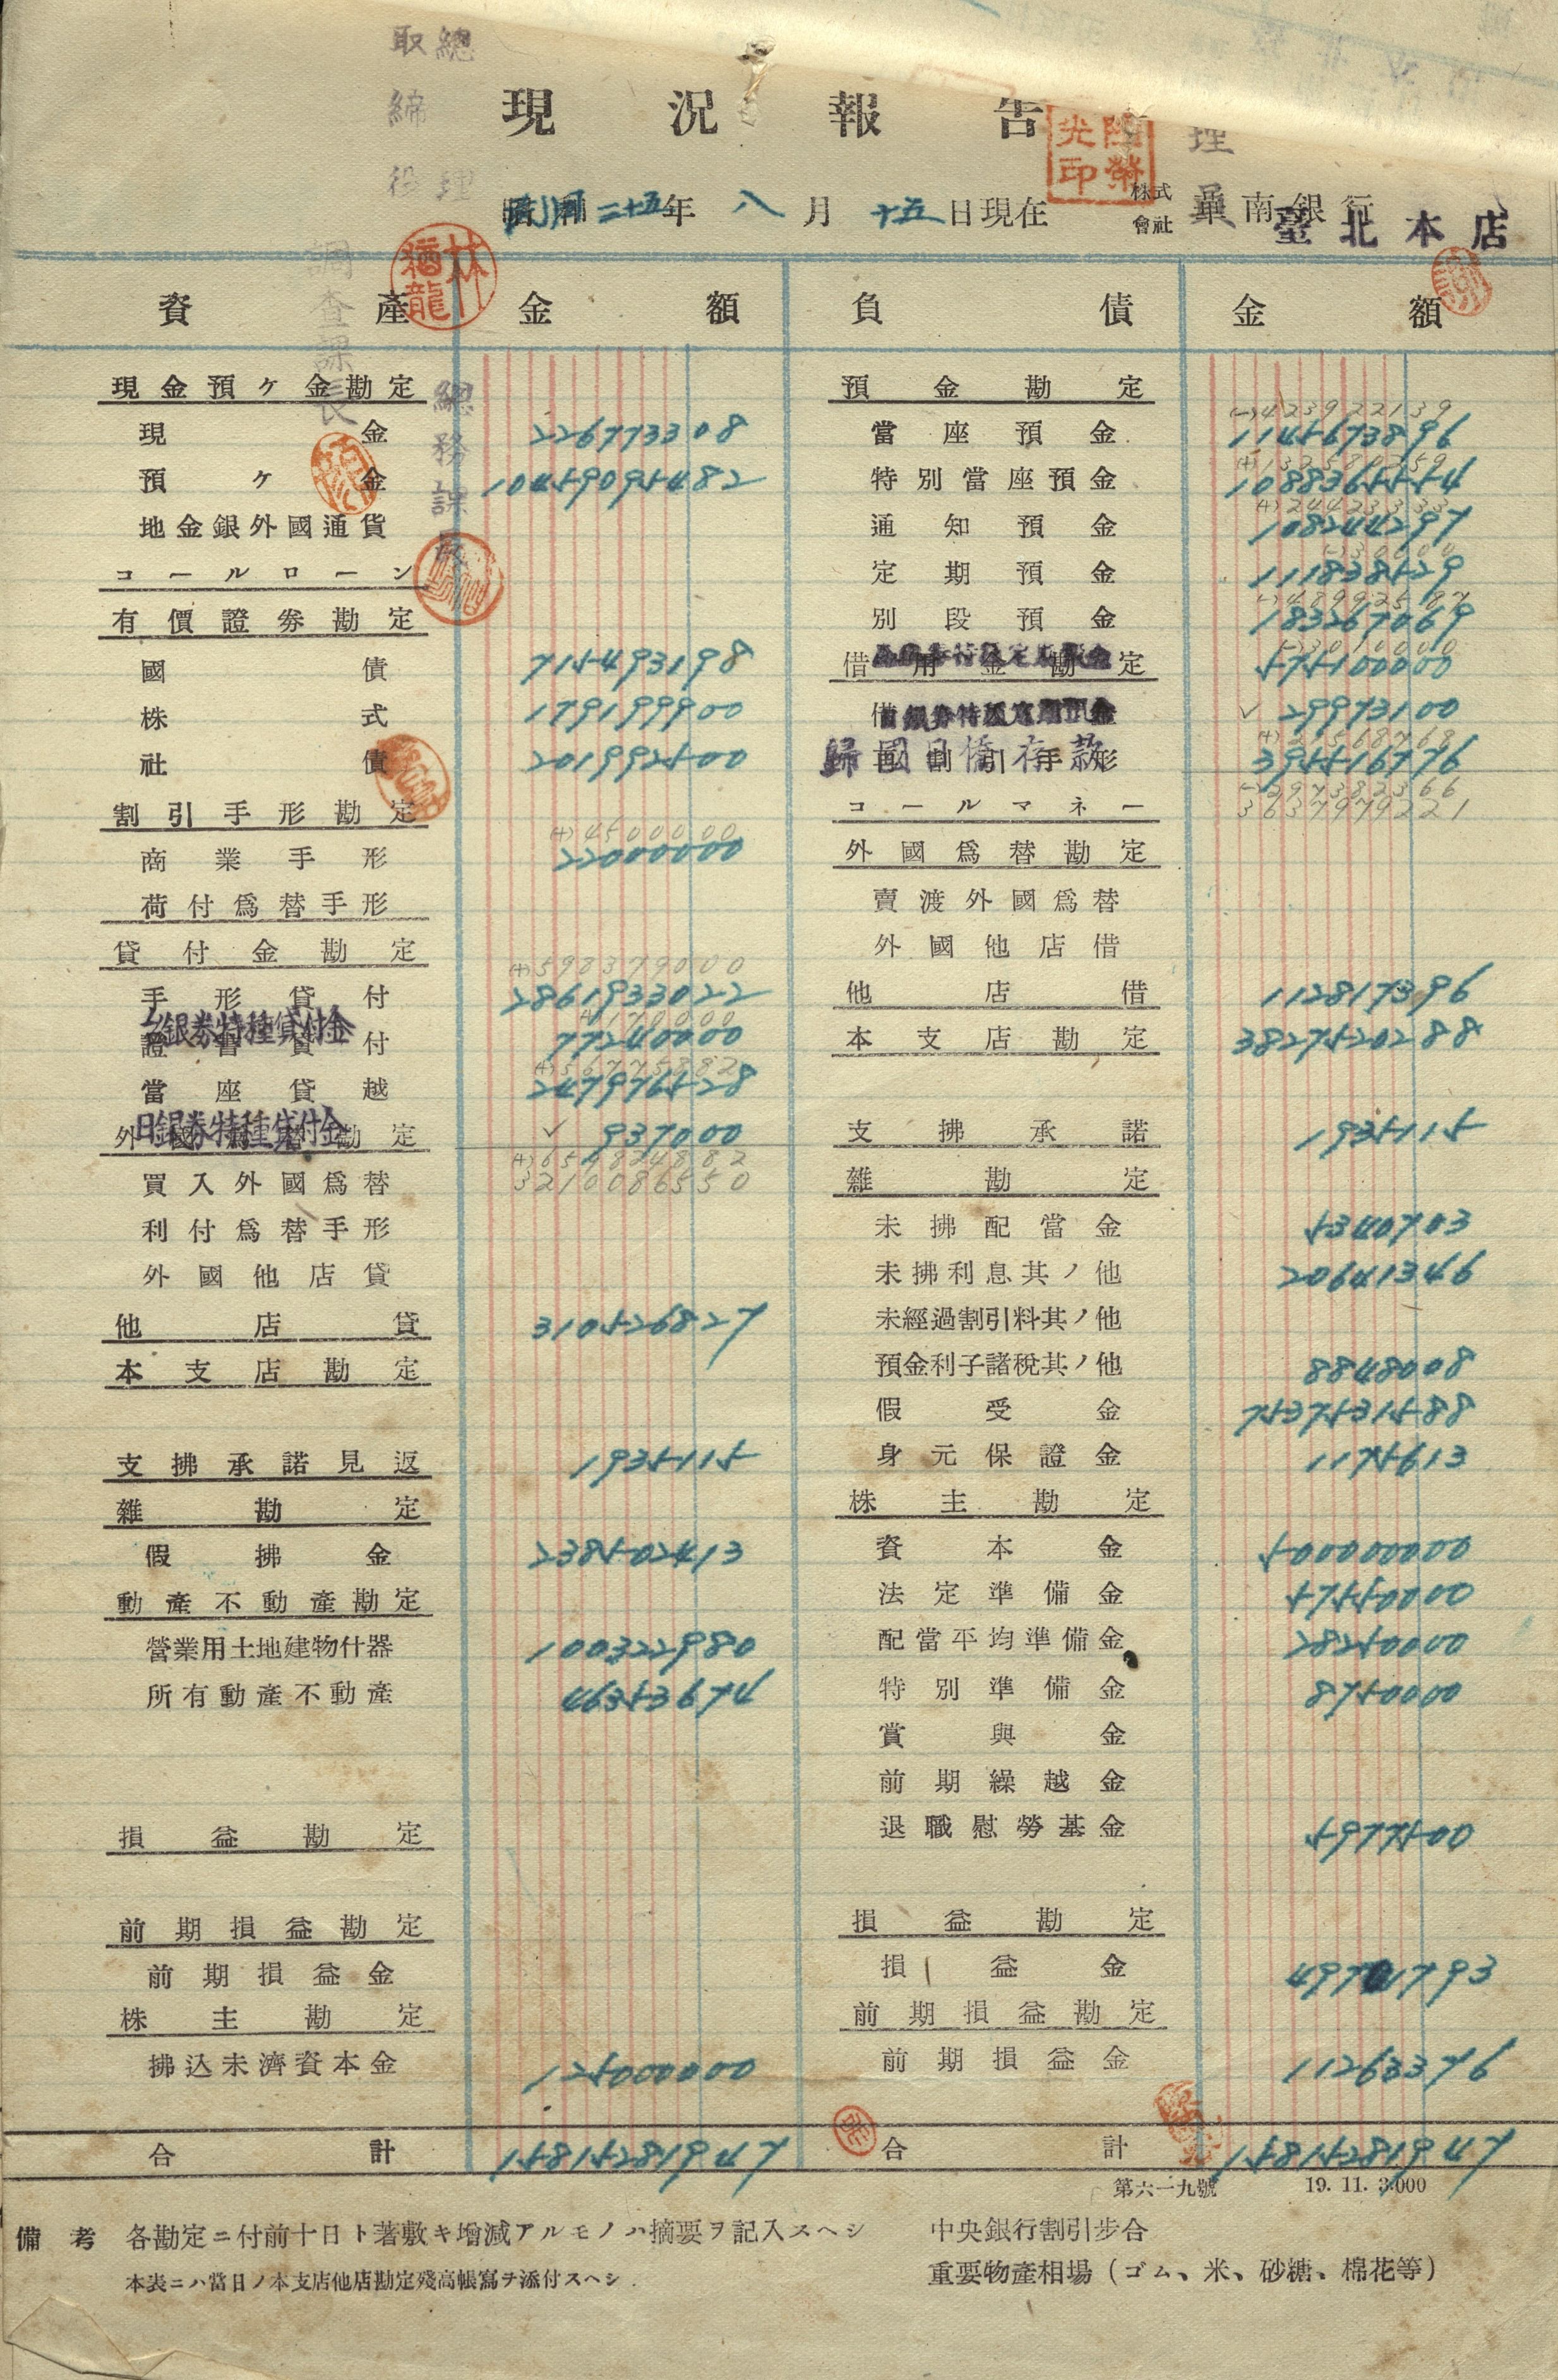 總理
取締役
調查課長
總務課長
現況報告
民國三十五年 八月 十五日現在
株式會社 華南銀行
臺北本店
陸榮光印
林猶龍
資產 金額 負債 金額
現金預ケ金勘定
現金 226773308
預ケ金 10459095482
地金銀外國通貨
コールローン
有價證券勘定
國債 715493198
株式 179199900
社債 201992500
割引手形勘定
(+)4500000
商業手形 22000000
荷付爲替手形
貸付金勘定
(+)598379000
手形貸付 2861933022
台銀券特種貸付金
證書貸付 77240000
(+)56775882
當座貸越 247976528
日銀券特種貸付金
外國爲替勘定 ✓937000
(+)654824882
3210086550
買入外國爲替
利付爲替手形
外國他店貸
他店貸 310526827
本支店勘定
支拂承諾見返 1935115
雜勘定
假拂金 238502413
動產不動產勘定
營業用土地建物什器 100322980
所有動產不動產 46353674
損益勘定
前期損益勘定
前期損益金
株主勘定
拂込未濟資本金 125000000
合計 15815281947
預金勘定
(-)423922139
當座預金 1145673896
特別當座預金 1088365554
通知預金 108244297
定期預金 111838529
別段預金 183267069
借用金勘定 575100000
✓29973100
歸國日僑存款
再割引手形 395516776
(-)297382366
3637979221
コールマネー
外國爲替勘定
賣渡外國爲替
外國他店借
他店借 112817396
本支店勘定 3827520288
支拂承諾 1935115
雜勘定
未拂配當金 5340703
未拂利息其ノ他 20641346
未經過割引料其ノ他
預金利子諸稅其ノ他 8848008
假受金 7537531588
身元保證金 1175613
株主勘定
資本金 500000000
法定準備金 57550000
配當平均準備金 28250000
特別準備金 8750000
賞與金
前期繰越金
退職慰勞基金 5977500
損益勘定
損益金 49701793
前期損益勘定
前期損益金 11263376
合計 15815281947
第六一九號 19. 11. 3.000
備考 各勘定ニ付前十日ト著敷キ增減アルモノハ摘要ヲ記入スヘシ
本表ニハ當日ノ本支店他店勘定殘高帳寫チ添付スヘシ
中央銀行割引步合
重要物產相場(ゴム、米、砂糖、棉花等)